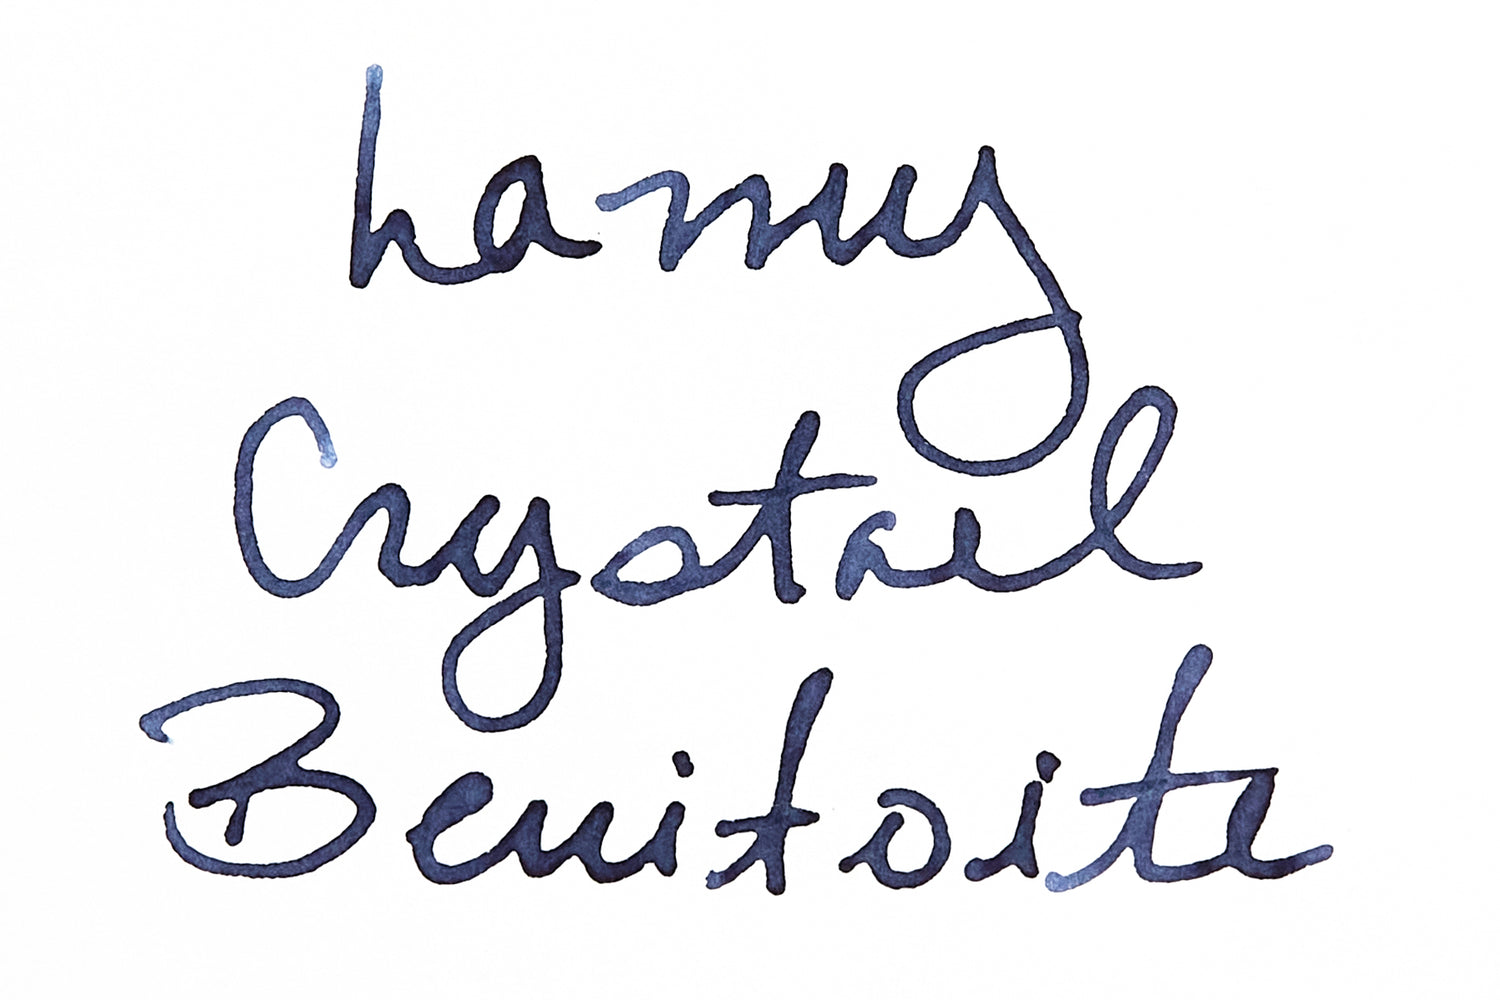 Lamy
Crystal
Benitoite